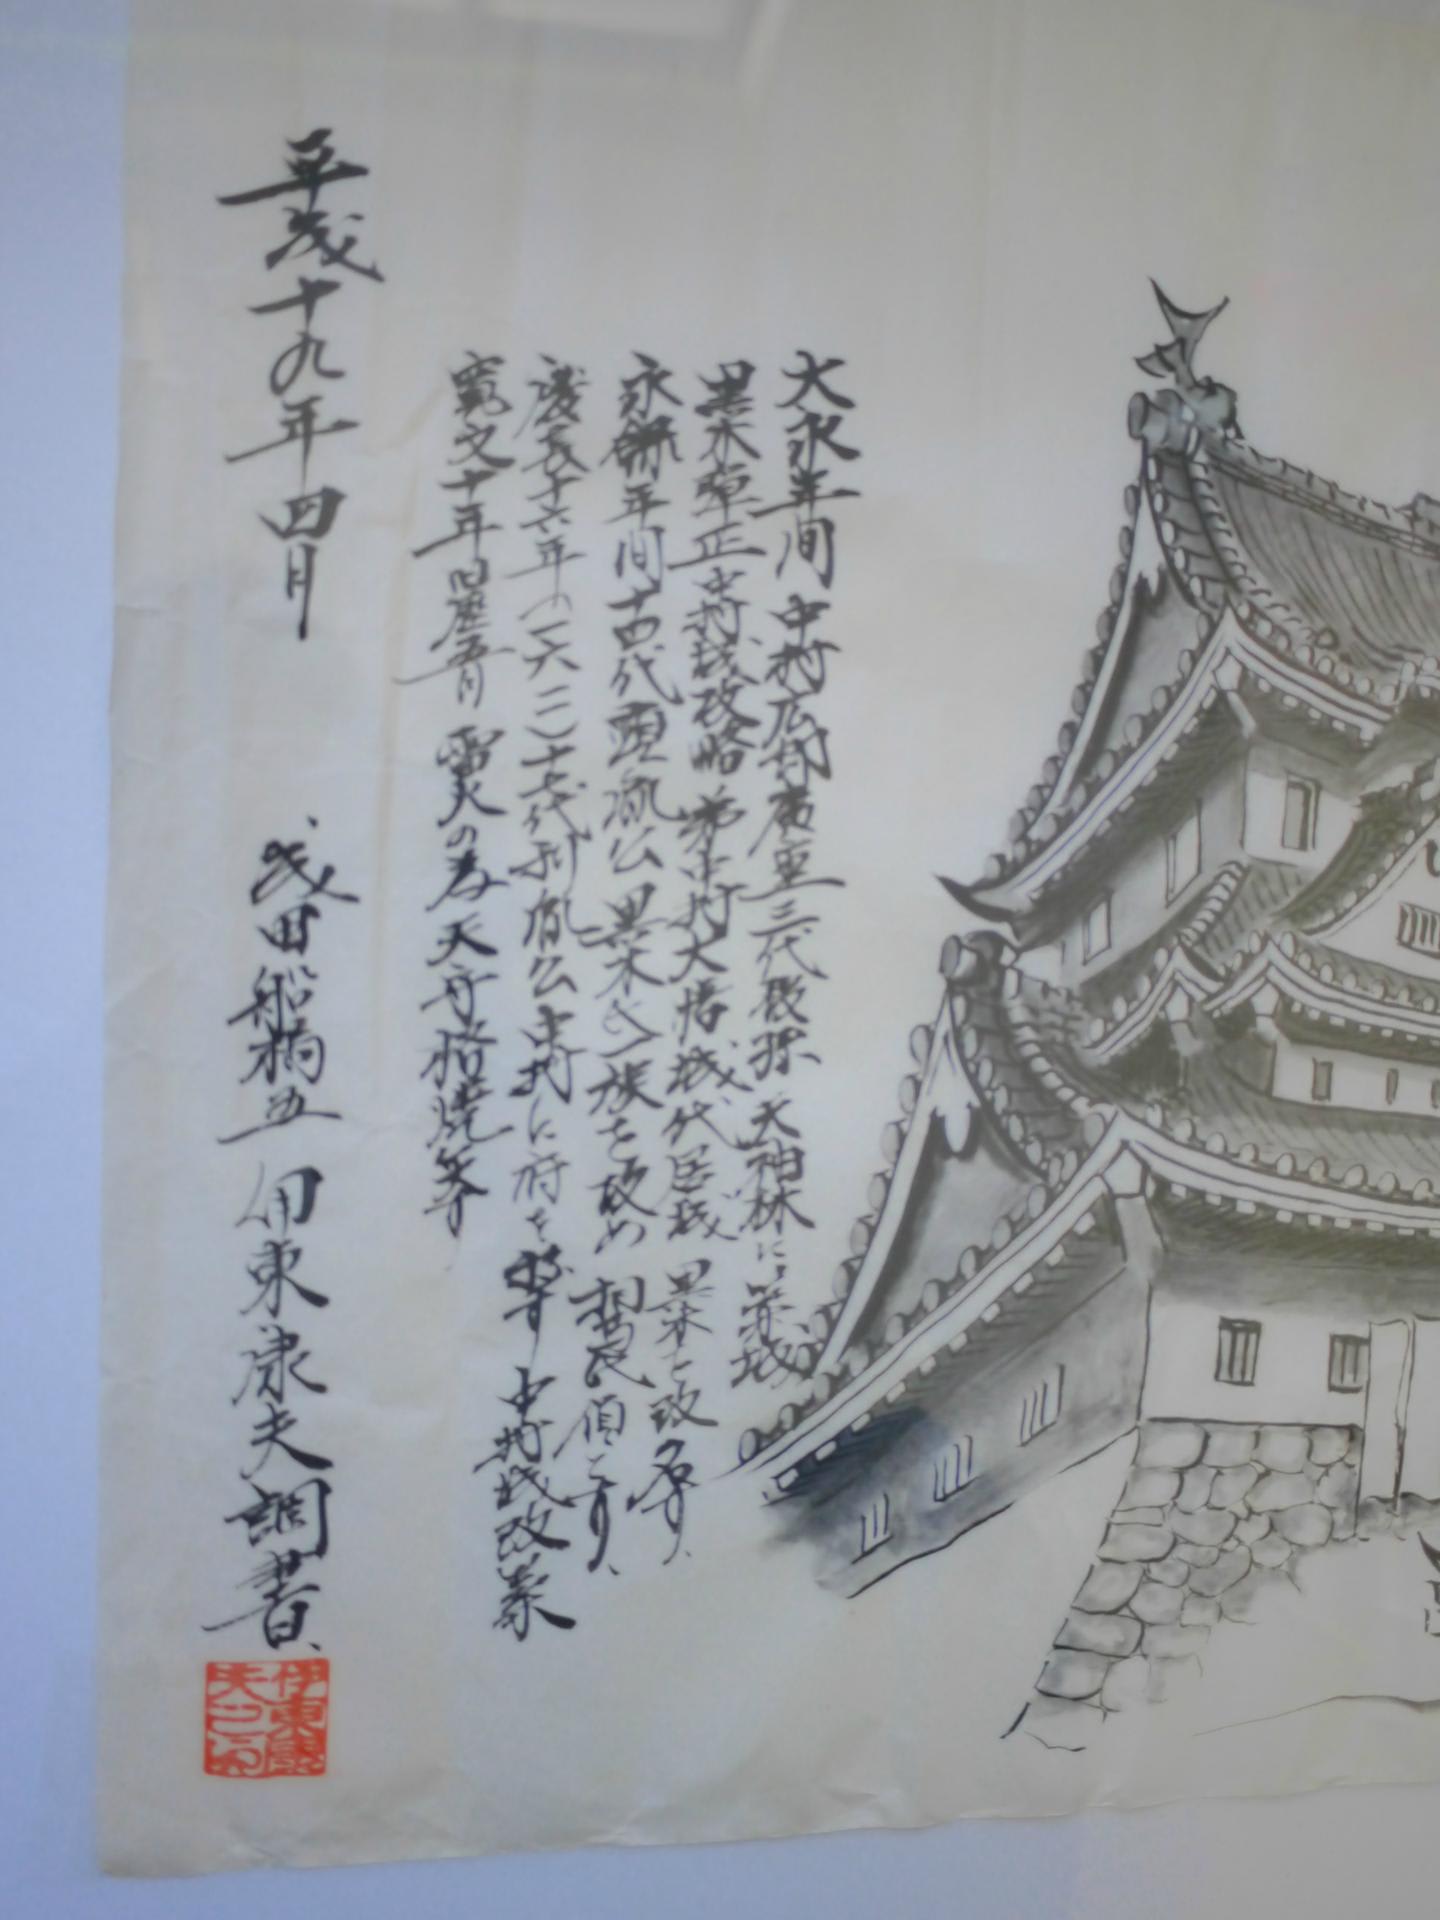 大永年間 中村広邦廣重三代後孫 天神林に築城
黒木弾正中村城攻略 弟中村大膳城代居城 黒木と改名す、
永禄年間十四代 顕胤公 黒木氏一族を攻め 相馬領となり、
慶長十六年(一六一一)十七代利胤公中村に府を移す 中村城改築
寛文十年旧歴五月 雷火の為天守楼焼失す
平成十九年四月
成田船橋五 伊東康夫 調書、
伊東康夫之印